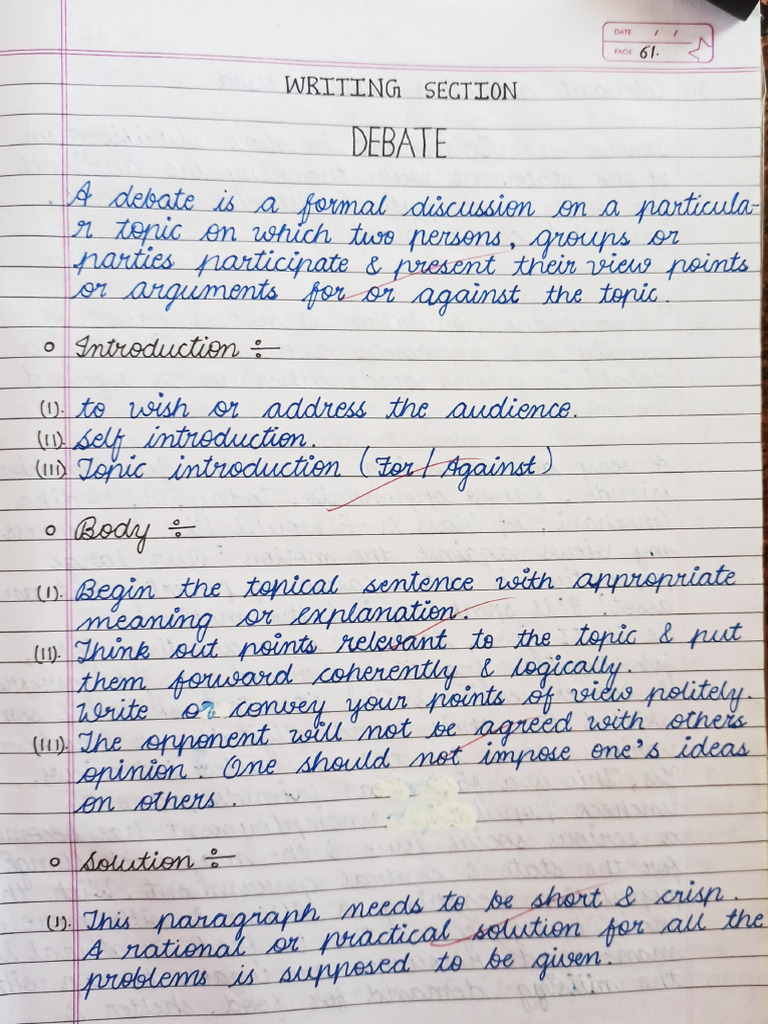 DATE / /
PAGE 61.
WRITING SECTION
DEBATE
A debate is a formal discussion on a particula-
r topic on which two persons, groups or
parties participate & present their view points
or arguments for or against the topic.
Introduction ÷
(I). to wish or address the audience.
(II) self introduction.
(III) Topic introduction (For/Against)
Body ÷
(I). Begin the topical sentence with appropriate
meaning or explanation.
(II). Think out points relevant to the topic & put
them forward coherently & logically.
Write or convey your points of view politely.
(III). The opponent will not be agreed with others
opinion. One should not impose one's ideas
on others.
Solution ÷
(I). This paragraph needs to be short & crisp.
A rational or practical solution for all the
problems is supposed to be given.